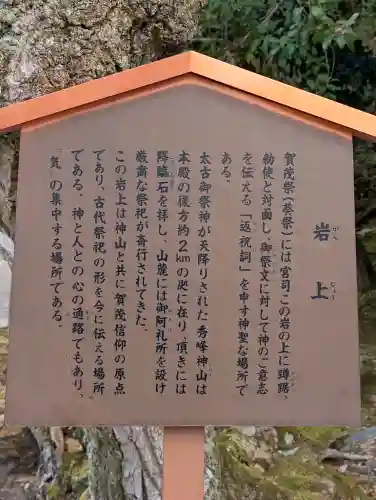 岩上
がんじょう
賀茂祭（葵祭）には宮司この岩の上に蹲踞、
勅使と対面し、御祭文に対して神のご意志
を伝える「返祝詞」を申す神聖な場所で
ある。
太古御祭神が天降りされた秀峰神山は
本殿の後方約２kmの処に在り、頂きには
降臨石を拝し、山麓には御阿礼所を設け
厳粛な祭祀が斎行されてきた。
この岩上は神山と共に賀茂信仰の原点
であり、古代祭祀の形を今に伝える場所
である。神と人との心の通路でもあり、
〝気〟の集中する場所である。